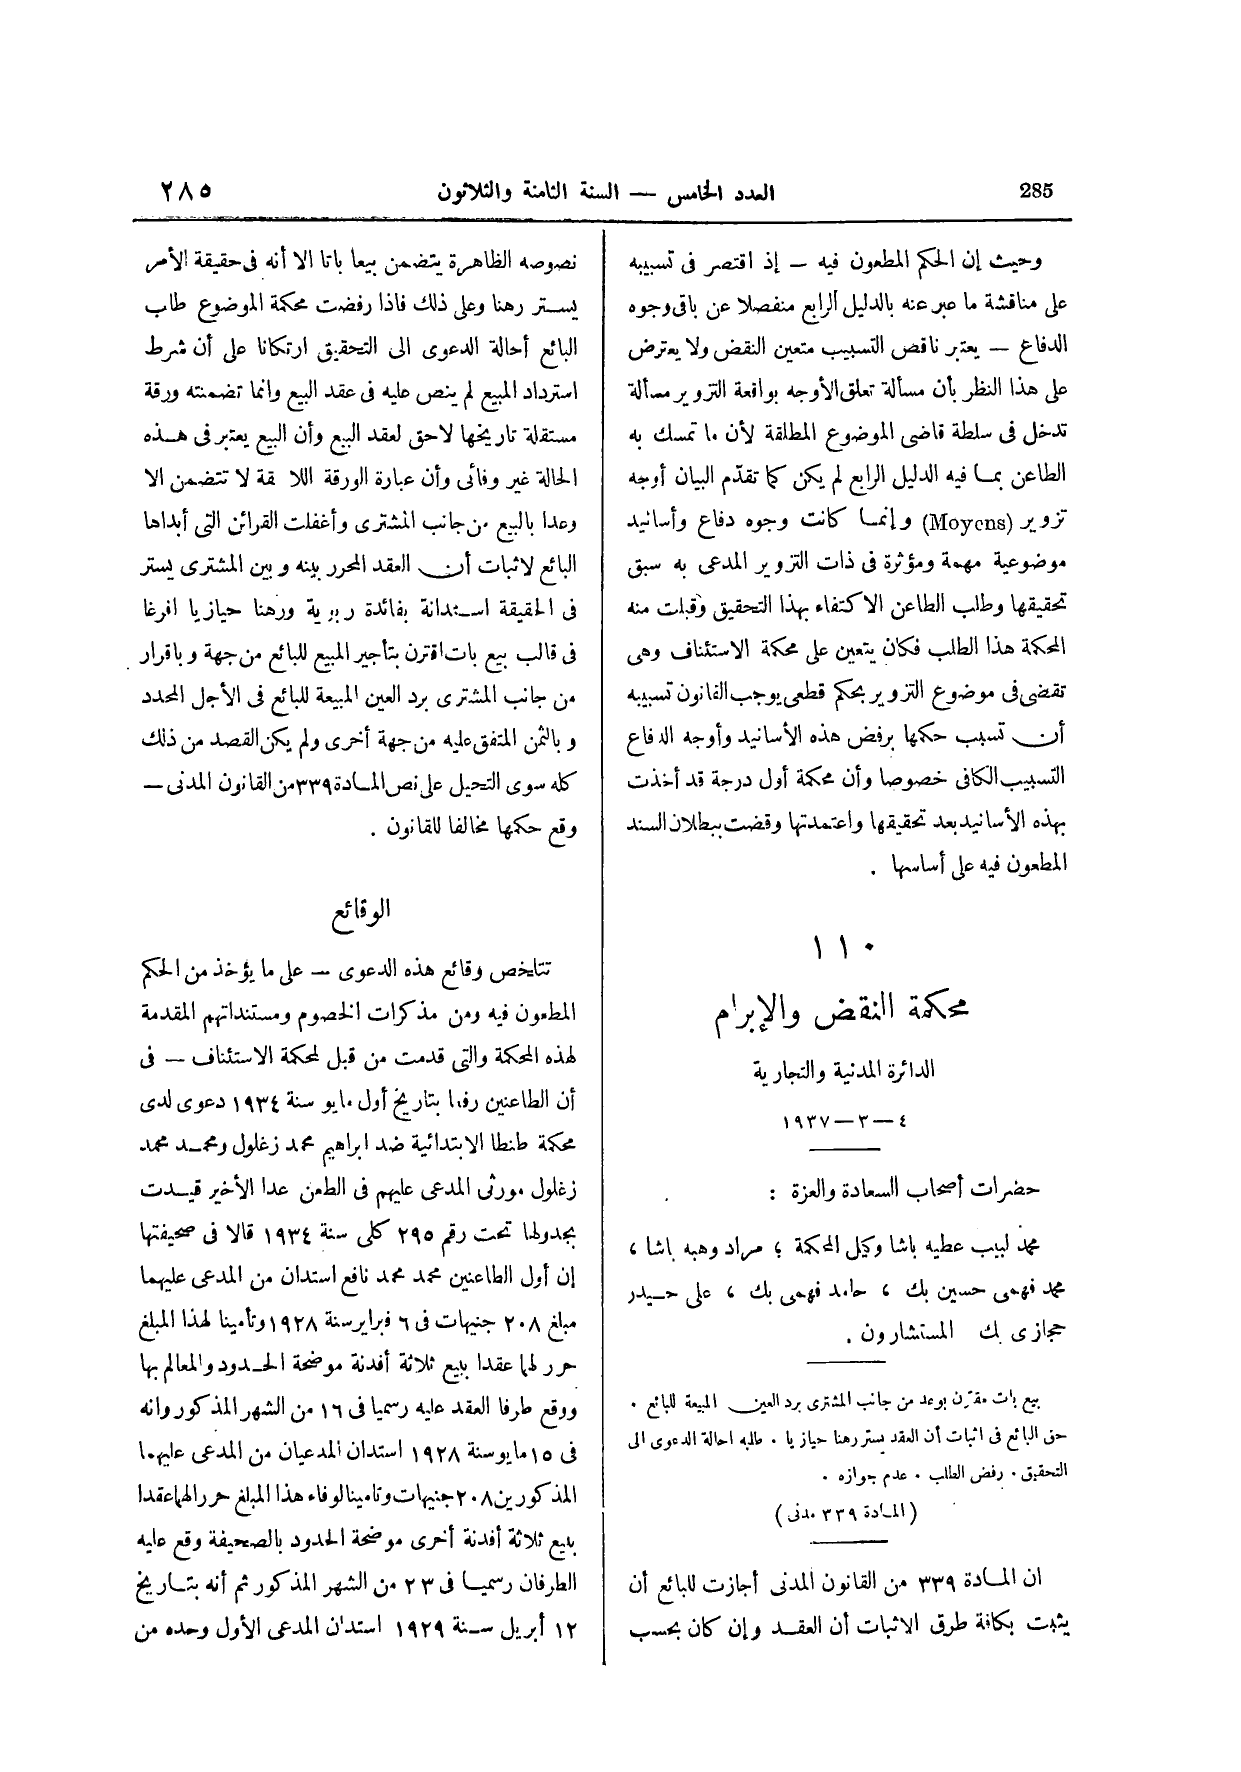 285 العدد الخامس — السنة الثامنة والثلاثون ٢٨٥
وحيث إن الحكم المطعون فيه – إذ اقتصر فى تسبيبه
على مناقشة ما عبر عنه بالدليل الرابع منفصلا عن باقى وجوه
الدفاع – يعتبر ناقص التسبيب متعين النقض ولا يعترض
على هذا النظر بأن مسألة تعلق الأوجه بواقعة التزوير مسألة
تدخل فى سلطة قاضى الموضوع المطلقة لأن ما تمسك به
الطاعن بما فيه الدليل الرابع لم يكن كما تقدّم البيان أوجه
تزوير (Moyens) وإنما كانت وجوه دفاع وأسانيد
موضوعية مهمة ومؤثرة فى ذات التزوير المدعى به سبق
تحقيقها وطلب الطاعن الاكتفاء بهذا التحقيق وقبلت منه
المحكمة هذا الطلب فكان يتعين على محكمة الاستئناف وهى
تقضى فى موضوع التزوير بحكم قطعى يوجب القانون تسبيبه
أن تسبب حكمها برفض هذه الأسانيد وأوجه الدفاع
التسبيب الكافى خصوصا وأن محكمة أول درجة قد أخذت
بهذه الأسانيد بعد تحقيقها واعتمدتها وقضت ببطلان السند
المطعون فيه على أساسها .
١١٠
محكمة النقض والإبرام
الدائرة المدنية والتجارية
٤ — ٣ — ١٩٣٧
حضرات أصحاب السعادة والعزة :
محمد لبيب عطيه باشا وكيل المحكمة ؛ مراد وهبه باشا ،
محمد فهمى حسين بك ، حامد فهمى بك ، على حيدر
حجازى بك المستشارون .
بيع بات مقترن بوعد من جانب المشترى برد العين المبيعة للبائع .
حق البائع فى اثبات أن العقد يستر رهنا حيازيا . طلبه احالة الدعوى الى
التحقيق . رفض الطلب . عدم جوازه .
( المادة ٣٣٩ مدنى )
ان المادة ٣٣٩ من القانون المدنى أجازت للبائع أن
يثبت بكافة طرق الاثبات أن العقد وإن كان بحسب
نصوصه الظاهرة يتضمن بيعا باتا الا أنه فى حقيقة الأمر
يستر رهنا وعلى ذلك فاذا رفضت محكمة الموضوع طلب
البائع أحالة الدعوى الى التحقيق ارتكانا على أن شرط
استرداد المبيع لم ينص عليه فى عقد البيع وانما تضمنته ورقة
مستقلة تاريخها لاحق لعقد البيع وأن البيع يعتبر فى هذه
الحالة غير وفائى وأن عبارة الورقة اللاحقة لا تتضمن الا
وعدا بالبيع من جانب المشترى وأغفلت القرائن التى أبداها
البائع لاثبات أن العقد المحرر بينه وبين المشترى يستر
فى الحقيقة استدانة بفائدة ربوية ورهنا حيازيا افرغا
فى قالب بيع بات اقترن بتأجير المبيع للبائع من جهة وباقرار
من جانب المشترى برد العين المبيعة للبائع فى الأجل المحدد
وبالثمن المتفق عليه من جهة أخرى ولم يكن القصد من ذلك
كله سوى التحيل على نص المادة ٣٣٩ من القانون المدنى —
وقع حكمها مخالفا للقانون .
الوقائع
تتلخص وقائع هذه الدعوى – على ما يؤخذ من الحكم
المطعون فيه ومن مذكرات الخصوم ومستنداتهم المقدمة
لهذه المحكمة والتى قدمت من قبل لمحكمة الاستئناف – فى
أن الطاعنين رفعا بتاريخ أول مايو سنة ١٩٣٤ دعوى لدى
محكمة طنطا الابتدائية ضد ابراهيم محمد زغلول ومحمد محمد
زغلول مورثى المدعى عليهم فى الطعن عدا الأخير قيدت
بجدولها تحت رقم ٢٩٥ كلى سنة ١٩٣٤ قالا فى صحيفتها
إن أول الطاعنين محمد محمد نافع استدان من المدعى عليهما
مبلغ ٢٠٨ جنيهات فى ٦ فبراير سنة ١٩٢٨ وتأمينا لهذا المبلغ
حرر لهما عقدا ببيع ثلاثة أفدنة موضحة الحدود والمعالم بها
ووقع طرفا العقد عليه رسميا فى ١٦ من الشهر المذكور وانه
فى ١٥ مايو سنة ١٩٢٨ استدان المدعيان من المدعى عليهما
المذكورين ٢٠٨ جنيهات وتامينا لوفاء هذا المبلغ حررا لهما عقدا
ببيع ثلاثة أفدنة أخرى موضحة الحدود بالصحيفة وقع عليه
الطرفان رسميا فى ٢٣ من الشهر المذكور ثم أنه بتاريخ
١٢ أبريل سنة ١٩٢٩ استدان المدعى الأول وحده من